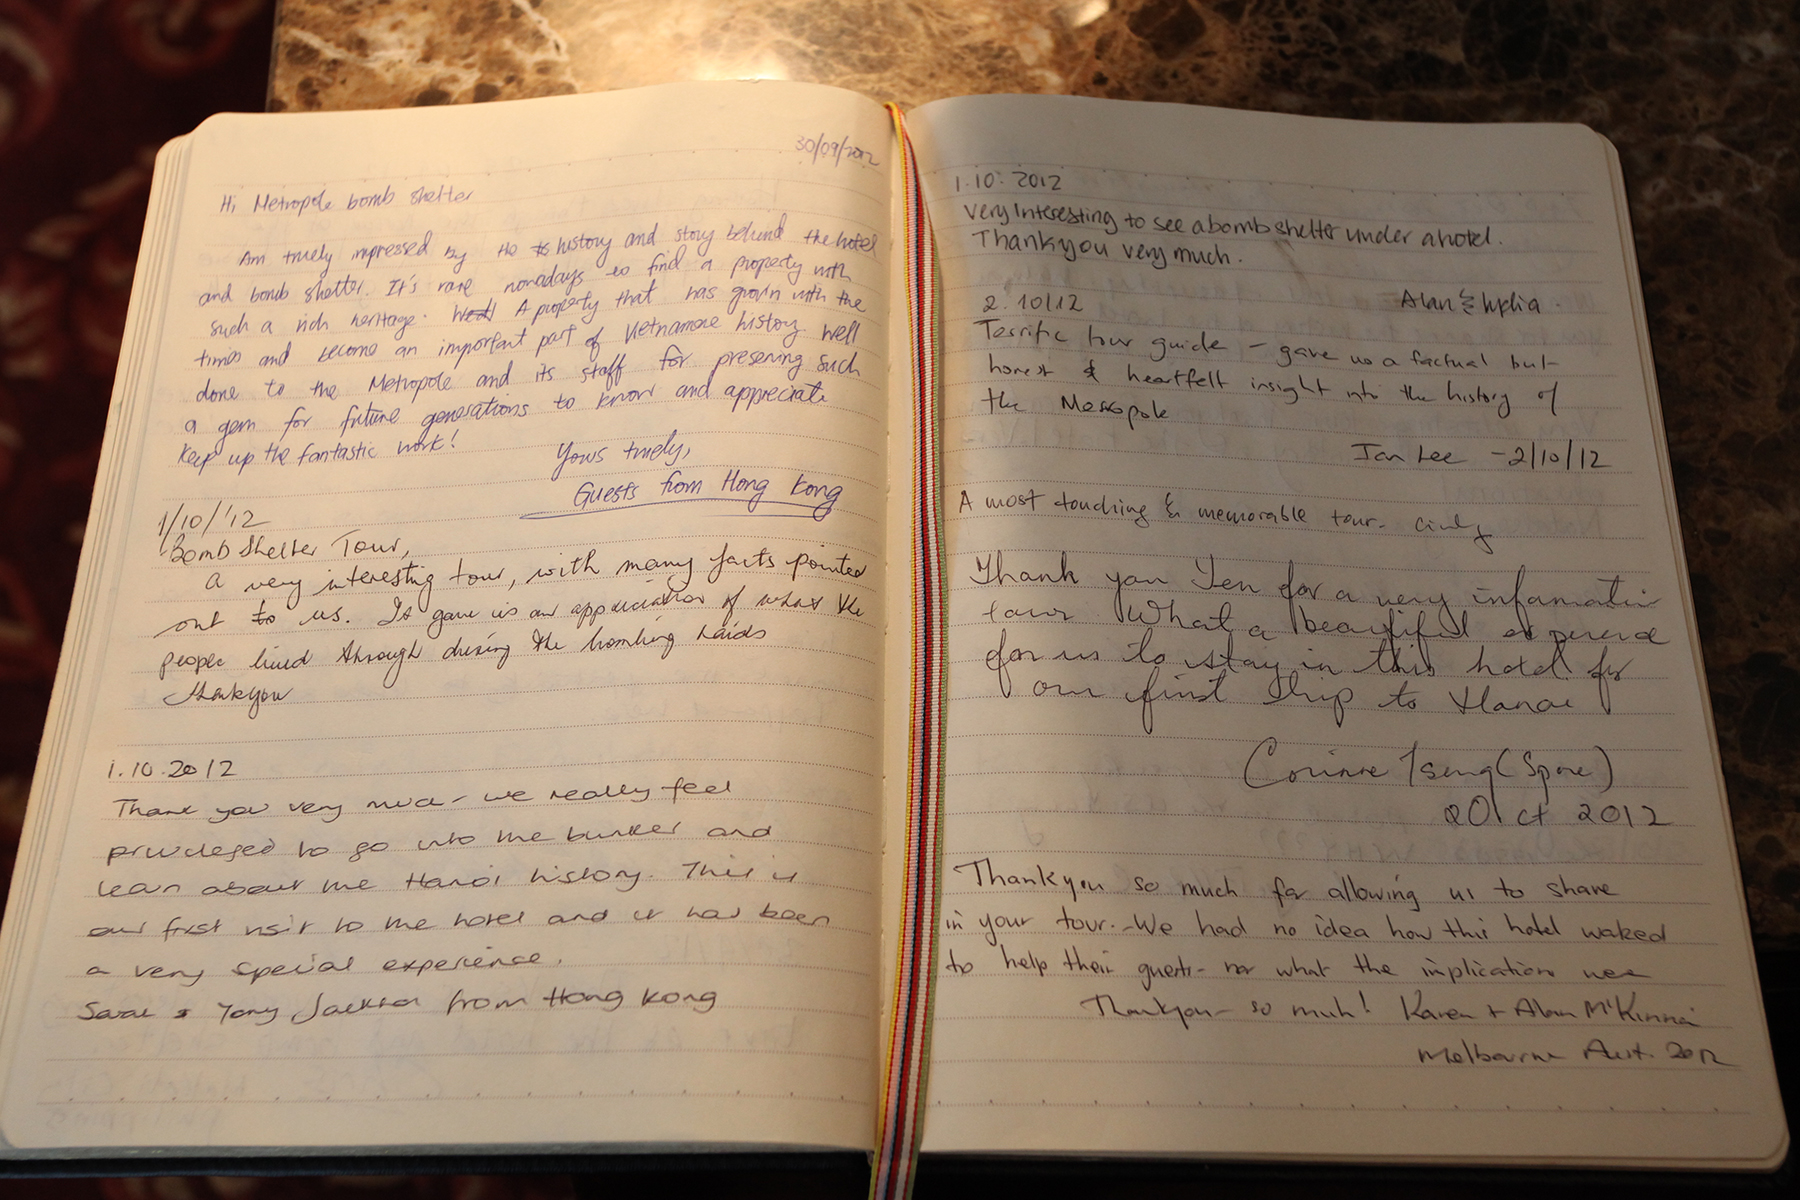 30/09/2012
Hi Metropole bomb shelter
Am truely impressed by the history and story behind the hotel
and bomb shelter. It's rare nowadays to find a property with
such a rich heritage. A property that has grown with the
times and become an important part of Vietnamese history well
done to the Metropole and its staff for preserving such
a gem for future generations to know and appreciate
Keep up the fantastic work!
Yours truely,
Guests from Hong Kong
1/10/'12
Bomb Shelter Tour,
a very interesting tour, with many facts pointed
out to us. It gave us an appreciation of what the
people lived through during the bombing raids
thankyou
1.10.2012
Thank you very much - we really feel
privileged to go into the bunker and
learn about the Hanoi history. This is
our first visit to the hotel and it has been
a very special experience.
& Tony Jackson from Hong Kong
1.10.2012
Very Interesting to see a bomb shelter under a hotel.
Thankyou very much.
Alan & Lydia.
2.10/12
Terrific tour guide - gave us a factual but
honest & heartfelt insight into the history of
the Metropole
Ian Lee - 2/10/12
A most touching & memorable tour. Cindy
Thank you Yen for a very
tour What a beautiful experience
for us to stay in this hotel for
our first trip to Hanoi
Corinne Tseng (Spore)
2 Oct 2012
Thankyou so much for allowing us to share
in your tour. - We had no idea how this hotel waked
to help their guests - nor what the implication were
Thankyou - so much! Karen + Alan
Melbourne Aust. 2012